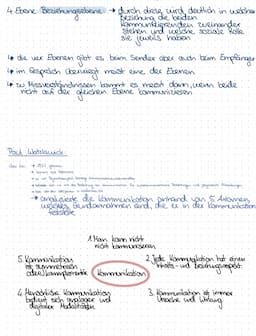 4. Ebene Beziehungsebene → durch diese wird deutlich in welcher
Beziehung die beiden
Kommunizierenden zueinander
stehen und welche soziale Rolle
sie jeweils haben
↳ die vier Ebenen gibt es beim Sender aber auch beim Empfänger
↳ im Gespräch überwiegt meist eine der Ebenen
↳ zu Missverständnissen kommt es meist dann, wenn beide
nicht auf der gleichen Ebene kommunizieren
Paul Watzlawick:
→ analysierte die Kommunikation anhand von 5 Axiomen
welches Grundannahmen sind, die er in der Kommunikation
feststellte
1. Man kann nicht
nicht kommunizieren
5. Kommunikation
ist symmetrisch
oder komplementär
2. Jede Kommunikation hat einen
Inhalts- und Beziehungsaspekt
Kommunikation
4. Menschliche Kommunikation
bedient sich analoger und
digitaler Modalitäten
3. Kommunikation ist immer
Ursache und Wirkung